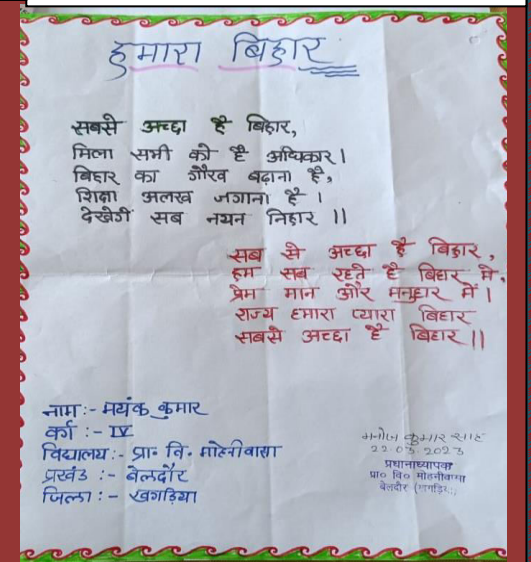 हमारा बिहार
सबसे अच्छा है बिहार,
मिला सभी को है अधिकार।
बिहार का गौरव बढ़ाना है,
शिक्षा अलख जगाना है।
देखेगी सब नयन निहार ।।
सब से अच्छा है बिहार,
हम सब रहते है बिहार में,
प्रेम मान और मनुहार में।
राज्य हमारा प्यारा बिहार
सबसे अच्छा है बिहार ।।
नाम :- मयंक कुमार
वर्ग :- IV
विद्यालय :- प्रा॰ वि॰ मोहनीवासा
प्रखंड :- बेलदौर
जिला :- खगड़िया
मनोज कुमार साह
22-03-2023
प्रधानाध्यापक
प्रा० वि० मोहनीवासा
बेलदौर